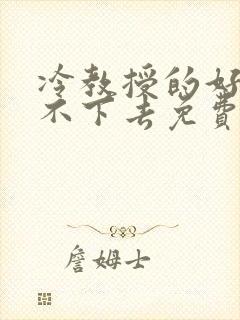 冷教授的好
不下去免費
詹姆士